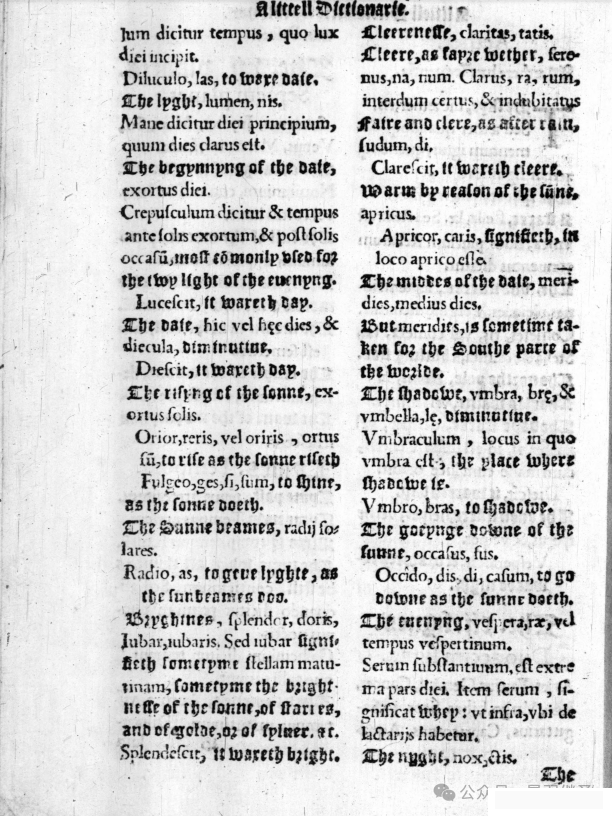 A littell Dictionarie.
lum dicitur tempus, quo lux
diei incipit.
Diluculo, las, to waxe daie.
The lyght, lumen, nis.
Mane dicitur diei principium,
quum dies clarus est.
The begynnyng of the daie,
exortus diei.
Crepusculum dicitur & tempus
ante solis exortum, & post solis
occasũ, most cõmonly vsed for
the twy light of the euenyng.
Lucescit, it waxeth day.
The daie, hic vel hęc dies, &
diecula, diminutiue.
Diescit, it waxeth day.
The risyng of the sonne, ex-
ortus solis.
Orior, reris, vel oriris, ortus
sũ, to rise as the sonne riseth
Fulgeo, ges, si, sum, to shine,
as the sonne doeth.
The Sunne beames, radij so-
lares.
Radio, as, to geue lyghte, as
the sunbeames doo.
Bryghtnes, splendor, doris,
Iubar, iubaris. Sed iubar signi-
fieth sometyme stellam matu-
tinam, sometyme the bright-
nesse of the sonne, of starres,
and of golde, or of syluer. &c.
Splendescit, it waxeth bright.
Cleerenesse, claritas, tatis.
Cleere, as fayre wether, sere-
nus, na, num. Clarus, ra, rum,
interdum certus, & indubitatus
Faire and clere, as after rain,
sudum, di.
Clarescit, it waxeth cleere.
Warm by reason of the sũne,
apricus.
Apricor, caris, signifieth, in
loco aprico esse.
The middes of the daie, meri-
dies, medius dies.
But meridies, is sometime ta-
ken for the Southe parte of
the worlde.
The shadowe, vmbra, brę, &
vmbella, lę, diminutiue.
Vmbraculum, locus in quo
vmbra est, the place where
shadowe is.
Vmbro, bras, to shadowe.
The goeynge downe of the
sunne, occasus, sus.
Occido, dis, di, casum, to go
downe as the sunne doeth.
The euenyng, vespera, ræ, vel
tempus vespertinum.
Serum substantiuum, est extre
ma pars diei. Item serum, si-
gnificat whey: vt infra, vbi de
lactarijs habetur.
The nyght, nox, ctis.
The
公众号